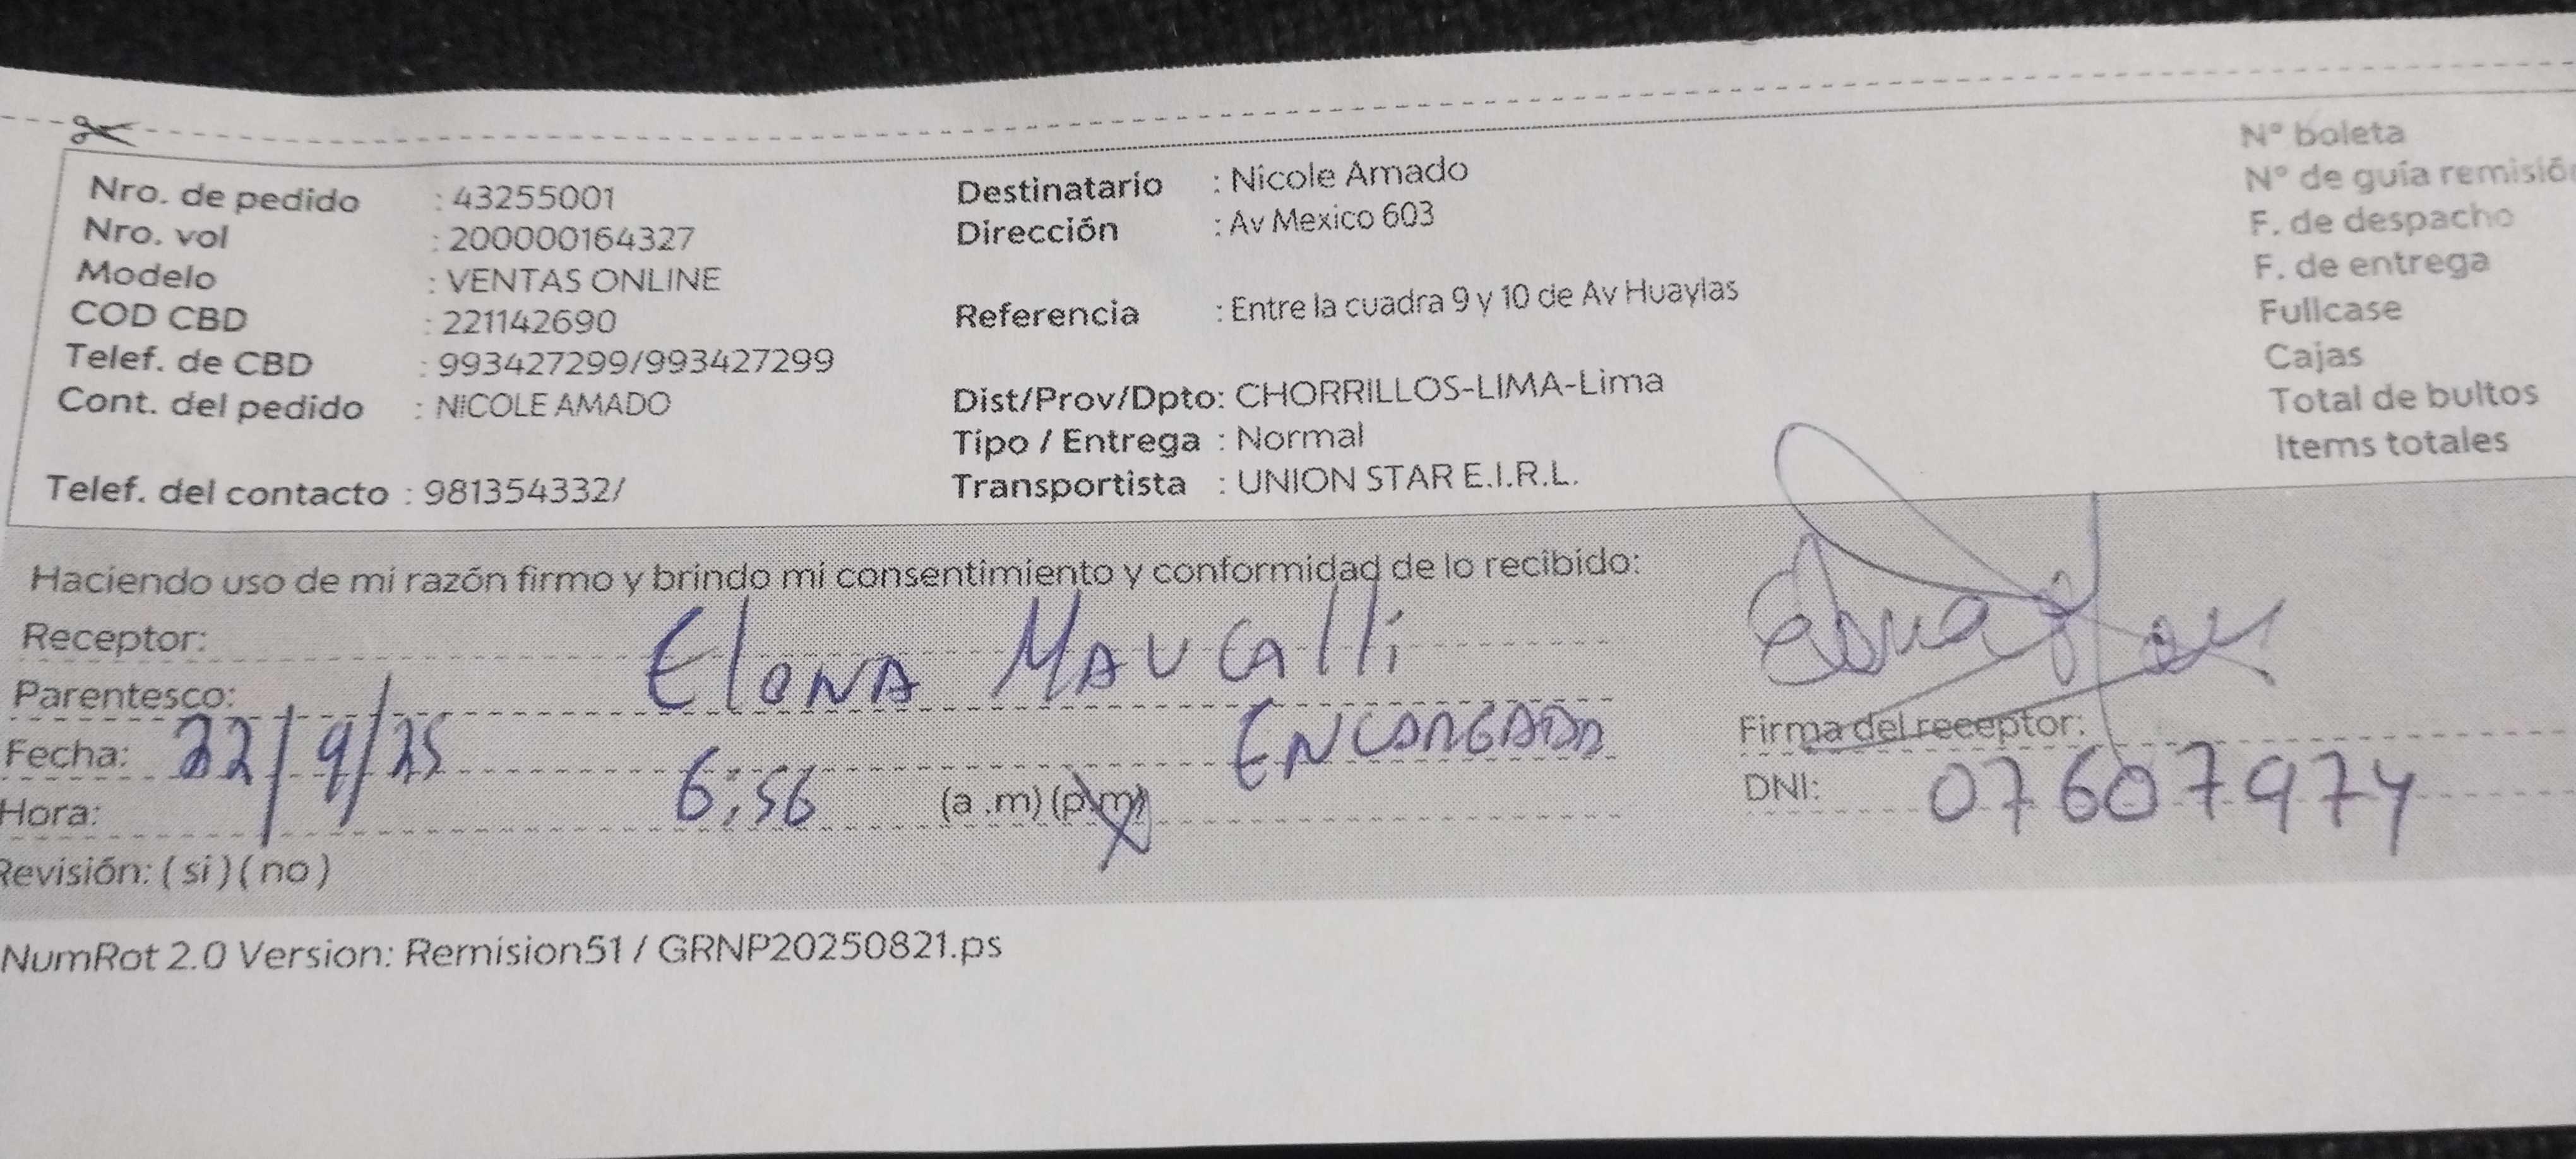 Nro. de pedido : 43255001
Nro. vol : 200000164327
Modelo : VENTAS ONLINE
COD CBD : 221142690
Telef. de CBD : 993427299/993427299
Cont. del pedido : NICOLE AMADO
Telef. del contacto : 981354332/
Destinatario : Nicole Amado
Dirección : Av Mexico 603
Referencia : Entre la cuadra 9 y 10 de Av Huaylas
Dist/Prov/Dpto: CHORRILLOS-LIMA-Lima
Tipo / Entrega : Normal
Transportista : UNION STAR E.I.R.L.
N° boleta
N° de guía remisión
F. de despacho
F. de entrega
Fullcase
Cajas
Total de bultos
Items totales
Haciendo uso de mi razón firmo y brindo mi consentimiento y conformidad de lo recibido:
Receptor: Elona Maucalli
Parentesco: ENCARGADA
Fecha: 22/9/25
Hora: 6:56 (a .m) (p.m)
Revisión: ( si ) ( no )
Firma del receptor:
DNI: 07607974
NumRot 2.0 Version: Remision51 / GRNP20250821.ps